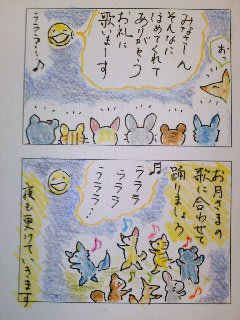 お
みなさーん
そんなに
ほめてくれて
ありがとう
お礼に
歌いまーす
ラララ…♪
お月さまの
歌に合わせて
踊りましょう
ラララ
ラララ
ラララ…
夜も更けていきます